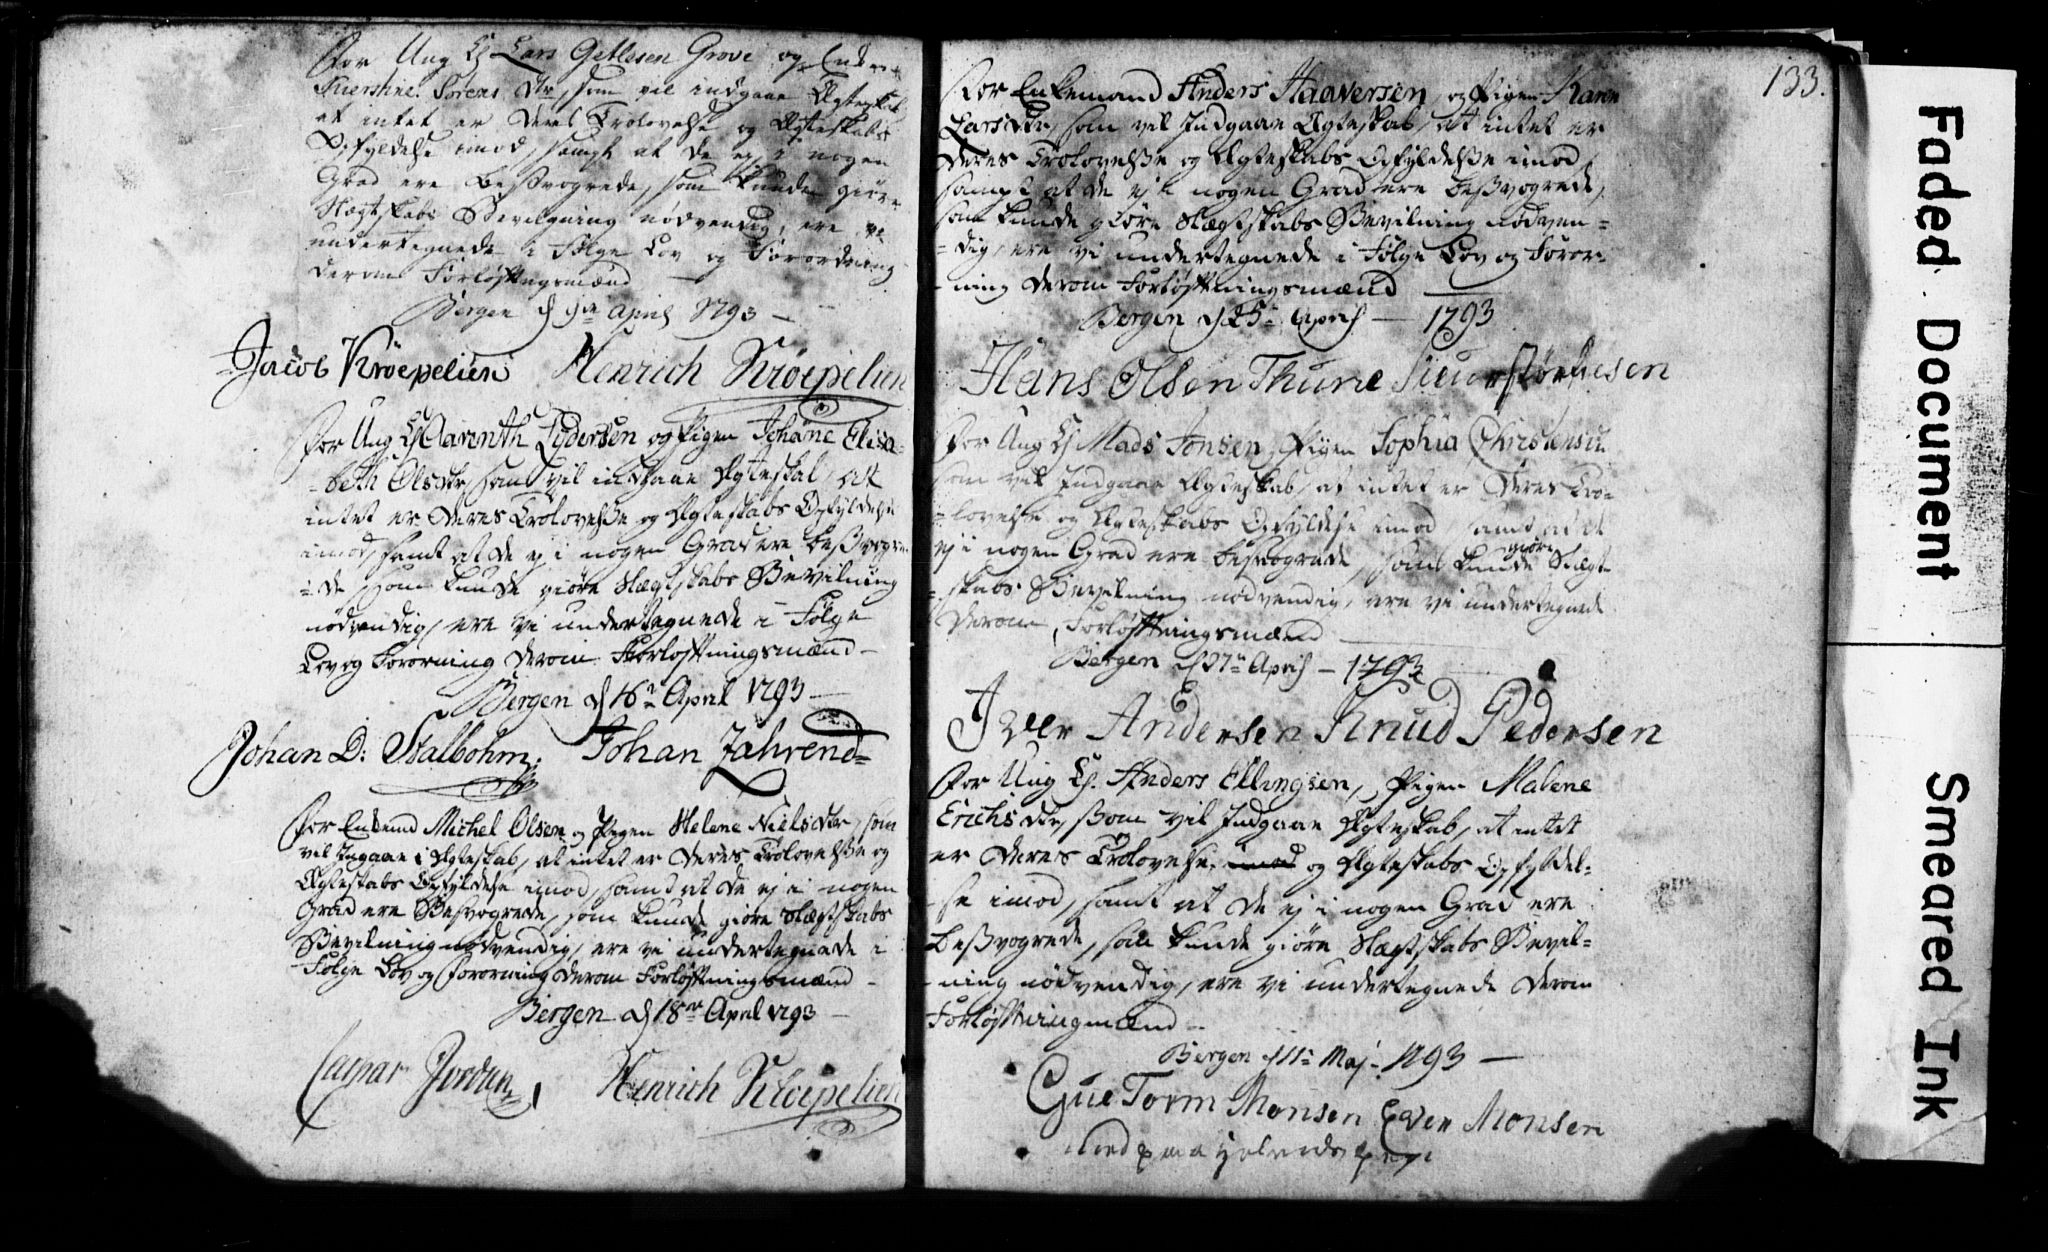 For Ung K. Lars Getlesen Grove og Enke
Kierstine Sørens dtr, som vil indgaae Ægteskab
at intet er deres Trolovelse og Ægteskabs
Opfyldelse imod, samt at de ej i nogen
Grad ere besvogrede, som kunde giøre
Slægtskabs Bevilgning nødvendig, ere vi
undertegnede i Følge Lov og Forordning
derom Forløftningsmænd
Bergen d 9de April 1793
Jacob Krøepelien Henrich Krøepelien
For Ung K. Aarenth Lydersen og Pigen Johane Elisa-
beth Olsdtr, som vil indgaae Ægteskab, att
intet er deres Trolovelse og Ægteskabs Opfyldelse
imod, samt at de ej i nogen Grad ere beßvogre-
de, som kunde giøre Slægtskabs Bevilning
nødvendig, ere vi undertegnede i Følge
Lov og Fororning derom Forløftningsmænd
Bergen d 16de April 1793
Johan D: Stalbohm. Johan Jahrend
For Enkemd Michel Olsen og Pigen Helene Nielsdtr, som
vil Ingaae i Ægteskab, at intet er deres Trolovelse og
Ægteskabs Opfyldelse imod, samt at de ej i nogen
Grad ere Besvogrede, som kunde giøre Slægtskabs
Bevilning nødvendig, ere vi undertegnede i
Følge Lov og Fororning derom Forløftningsmænd
Bergen d 18de April 1793
Caspar Jordan Henrich Krøepelien
133.
For Enkemand Anders Haaversen, og Pigen Karen
Larsdtr, som vil Indgaae Ægteskab, att intet er
deres Trolovelße og Ægteskabs Opfyldelße imod,
sampt at de ej i nogen Grad ere beßvogrede,
som kunde giøre Slægtskabs Bevilning nødven=
=dig, ere vi undertegnede i Følge Lov og Foror-
ning derom Forløftningsmænd
Bergen d 25de April 1793
Hans Olsen Thune
For Ung K. Mads Jonsen, Pigen Sophia
som vil Indgaae Ægteskab, at intet er deres Tro-
lovelse og Ægteskabs Opfyldelse imod, samt at de
ej i nogen Grad ere besvogrede, som kunde giøre Slægt-
skabs Bevilning nødvendig, ere vi undertegnede
derom Forløftningsmænd
Bergen d 27de April 1793
Iver Andersen Knud Pedersen
For Ung K. Anders Ellingsen, Pigen Malene
Erichsdtr, ßom vil Indgaae Ægteskab, at intet
er deres Trolovelse imod og Ægteskabs Opfyldel-
se imod, samt at de ej i nogen Grad ere
beßvogrede, som kunde giøre Slægtskabs Bevil=
ning nødvendig, ere vi undertegnede derom
Forløftningmænd
Bergen d 11te Maj 1793
Gue Torm Monsen Even Monsen
Faded Document
Smeared Ink